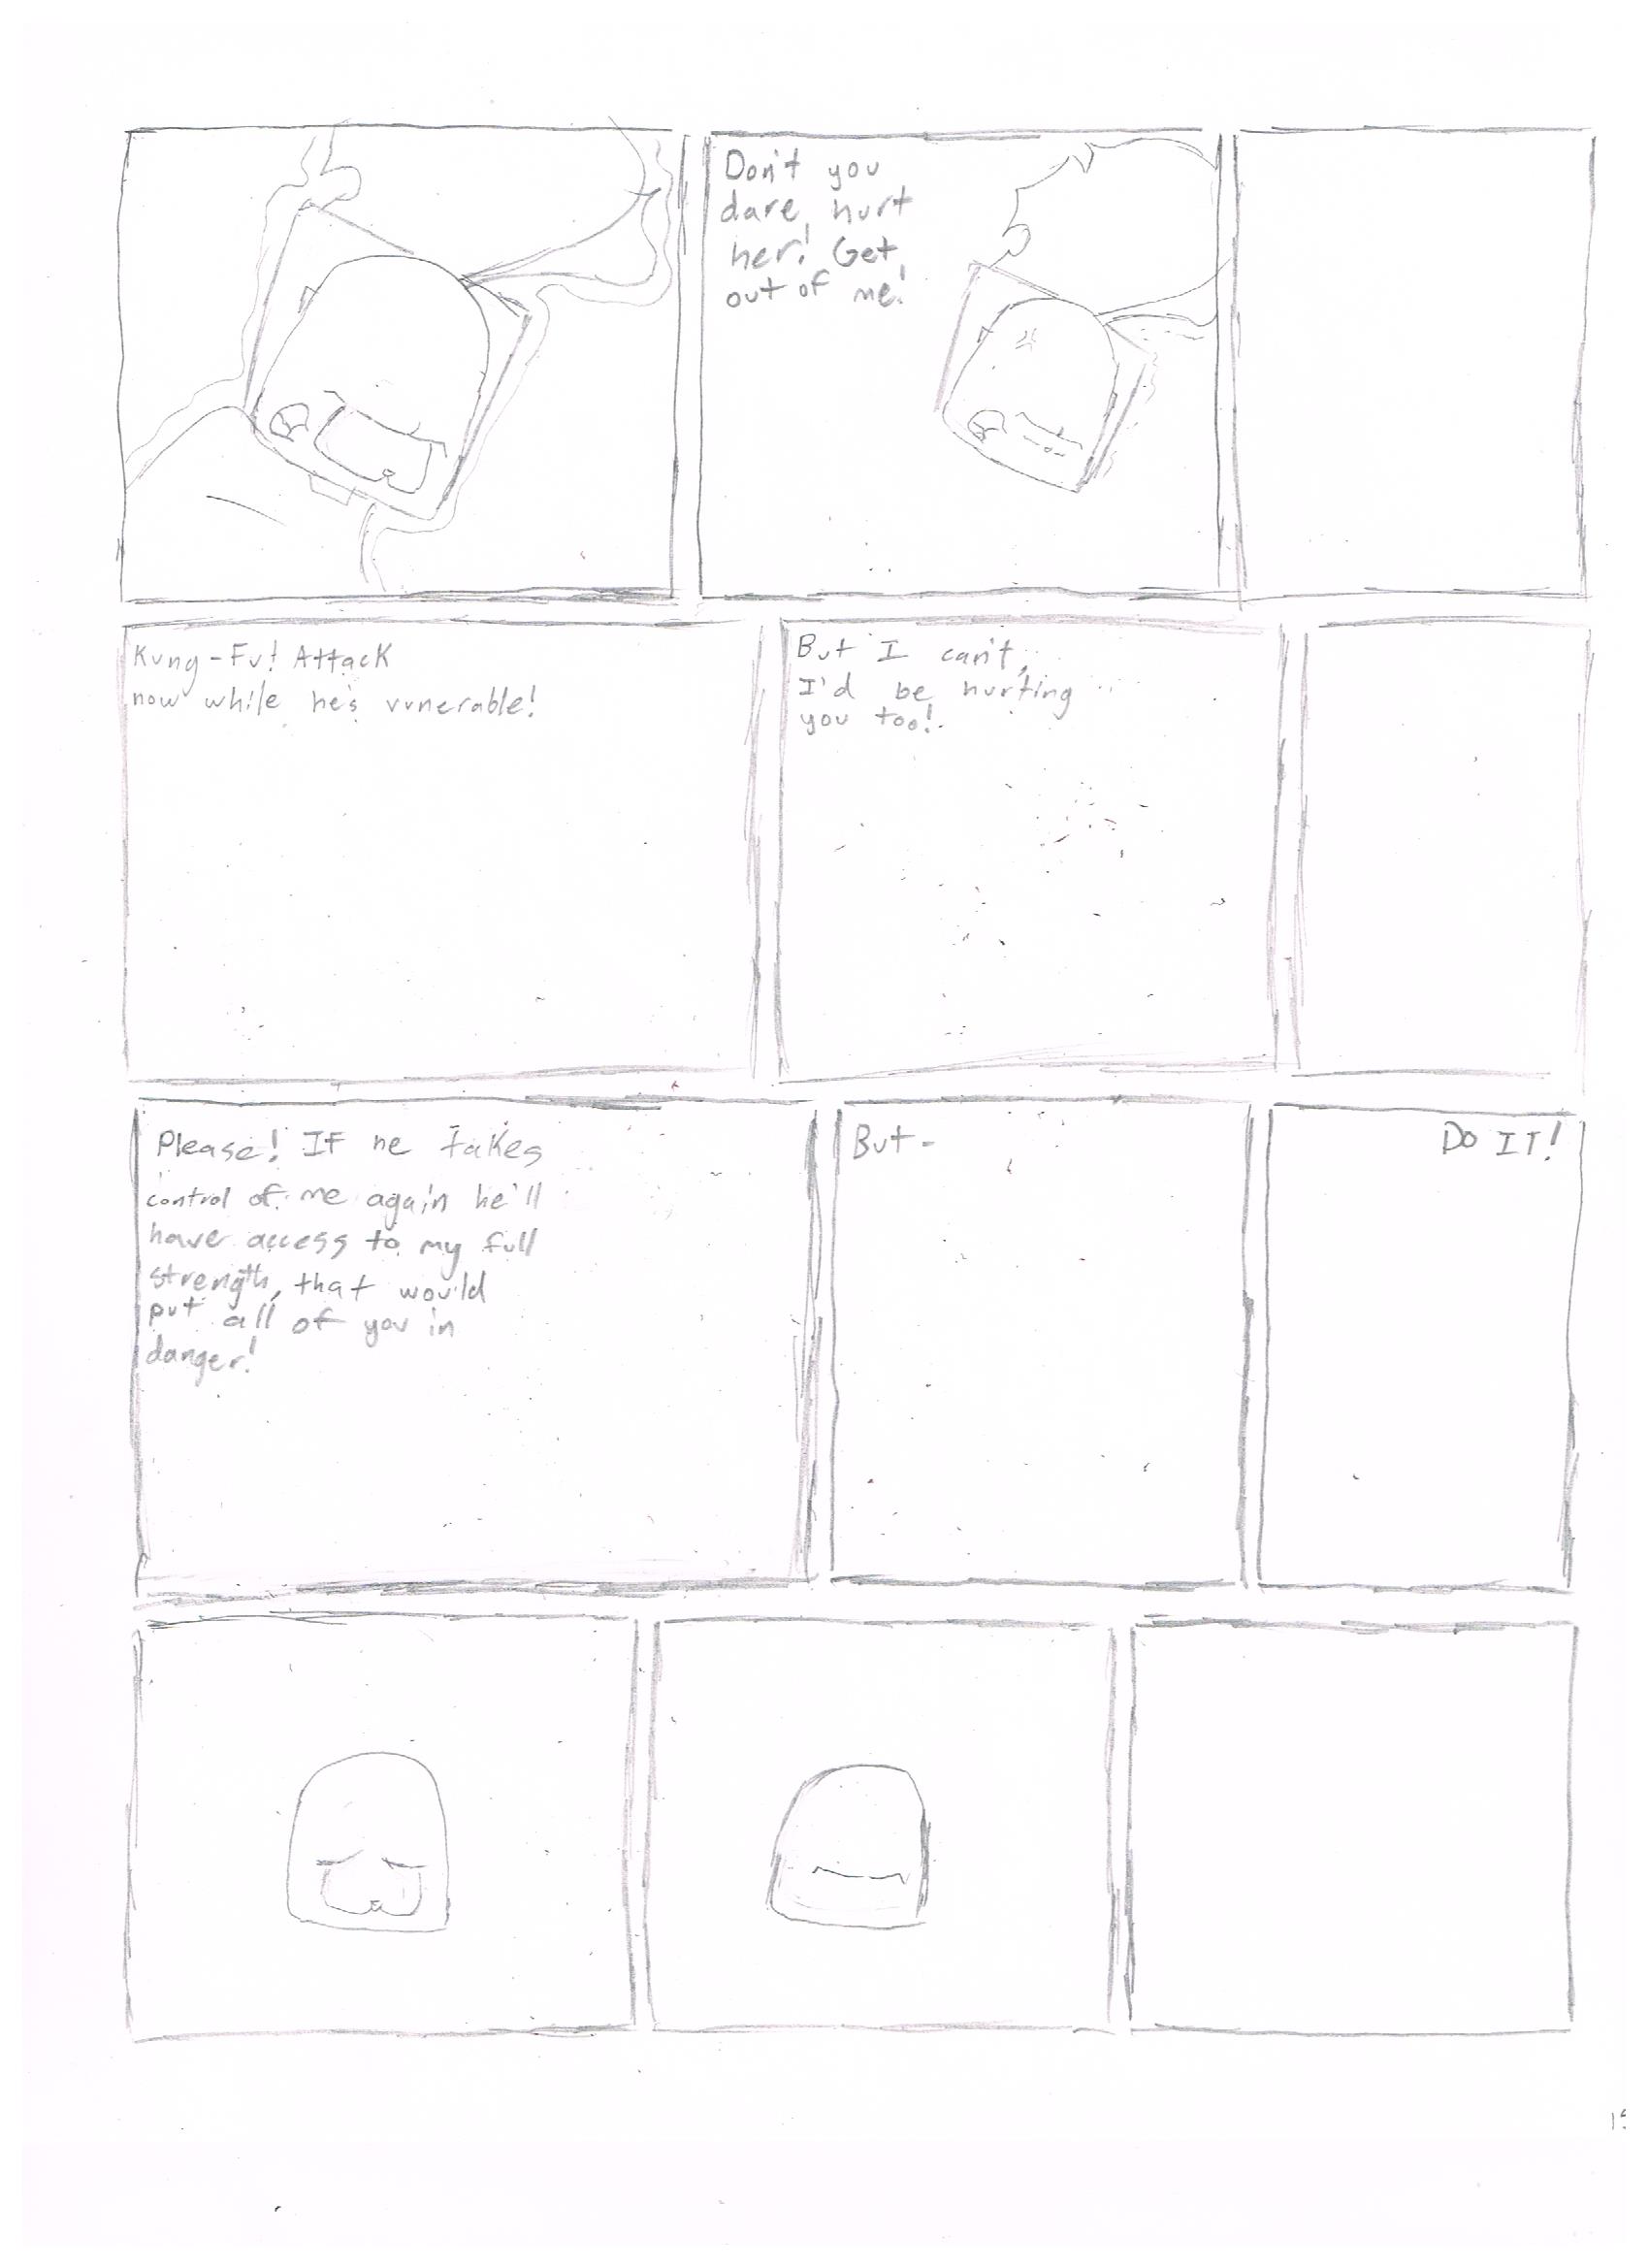 Don't you
dare hurt
her! Get
out of me!
Kung-Fu! Attack
now while he's vunerable!
But I can't,
I'd be hurting
you too!
Please! If he takes
control of me again he'll
have access to my full
strength, that would
put all of you in
danger!
But-
DO IT!